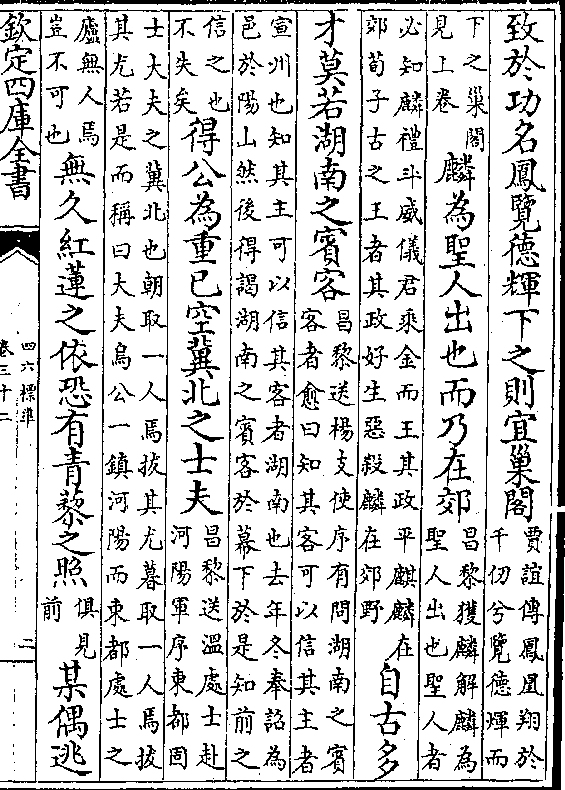 致於功名鳳覽德輝下之則宜巢閣賈誼傳鳳凰翔於千仞兮覽德煇而
下之巢閣見上卷麟為聖人出也而乃在郊昌黎獲麟解麟為聖人出也聖人者
必知麟禮斗威儀君乘金而王其政平麒麟在郊荀子古之王者其政好生惡殺麟在郊野自古多
才莫若湖南之賓客昌黎送楊支使序有問湖南之賓客者愈曰知其客可以信其主者
宣州也知其主可以信其客者湖南也去年冬奉詔為邑於陽山然後得謁湖南之賓客於幕下於是知前之
信之也不失矣得公為重已空冀北之士夫昌黎送溫處士赴河陽軍序東都固
士大夫之冀北也朝取一人焉拔其尤暮取一人焉拔其尤若是而稱曰大夫烏公一鎮河陽而東都處士之
廬無人焉豈不可也無久紅蓮之依恐有青藜之照俱見前某偶逃
欽定四庫全書
四六標準
卷三十二
二